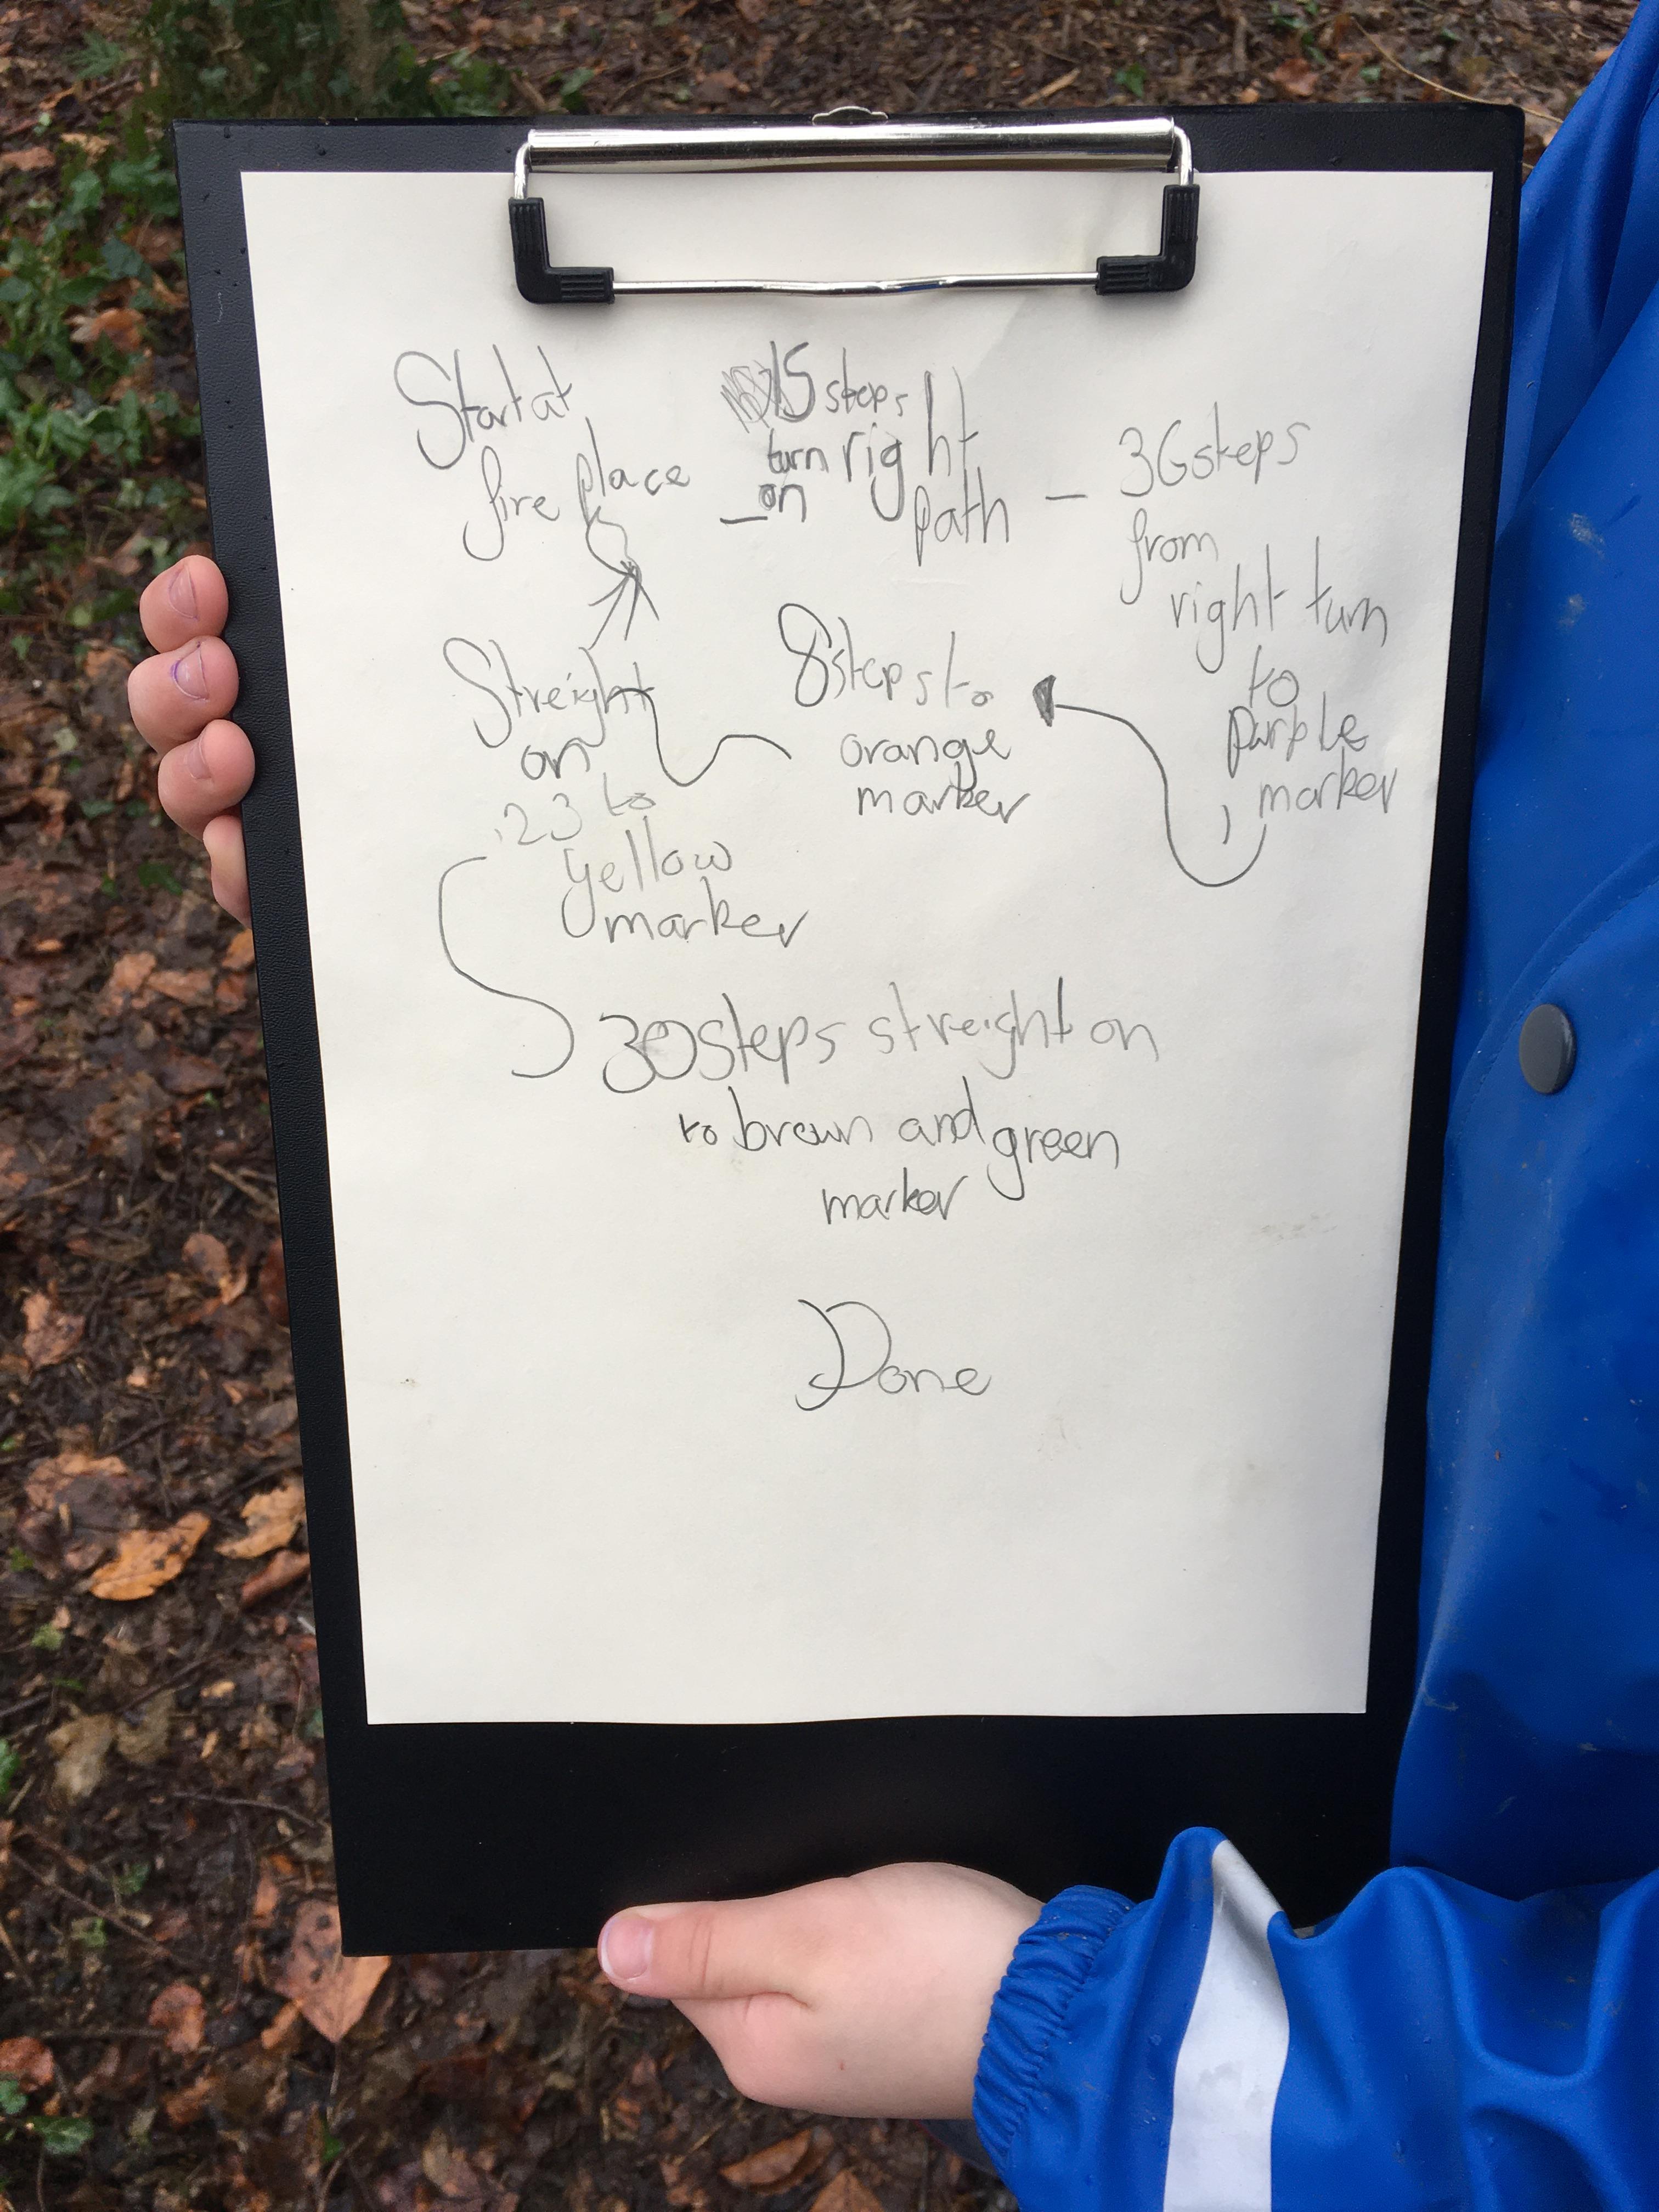 Start at
fire place
15 steps
turn right
on path
36 steps
from
right turn
to
purple
marker
8 steps to
orange
marker
Streight
on
23 to
yellow
marker
30 steps streight on
to brown and green
marker
Done